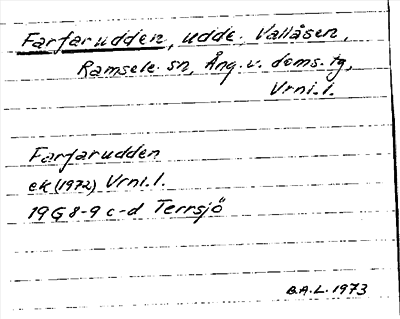 Farfarudden, udde, Vallåsen,
Ramsele sn, Ång. v. doms. tg,
Vrni. l.
Farfarudden
ek (1972) Vrni. l.
19G 8-9 c-d Terrsjö
B.A.L. 1973